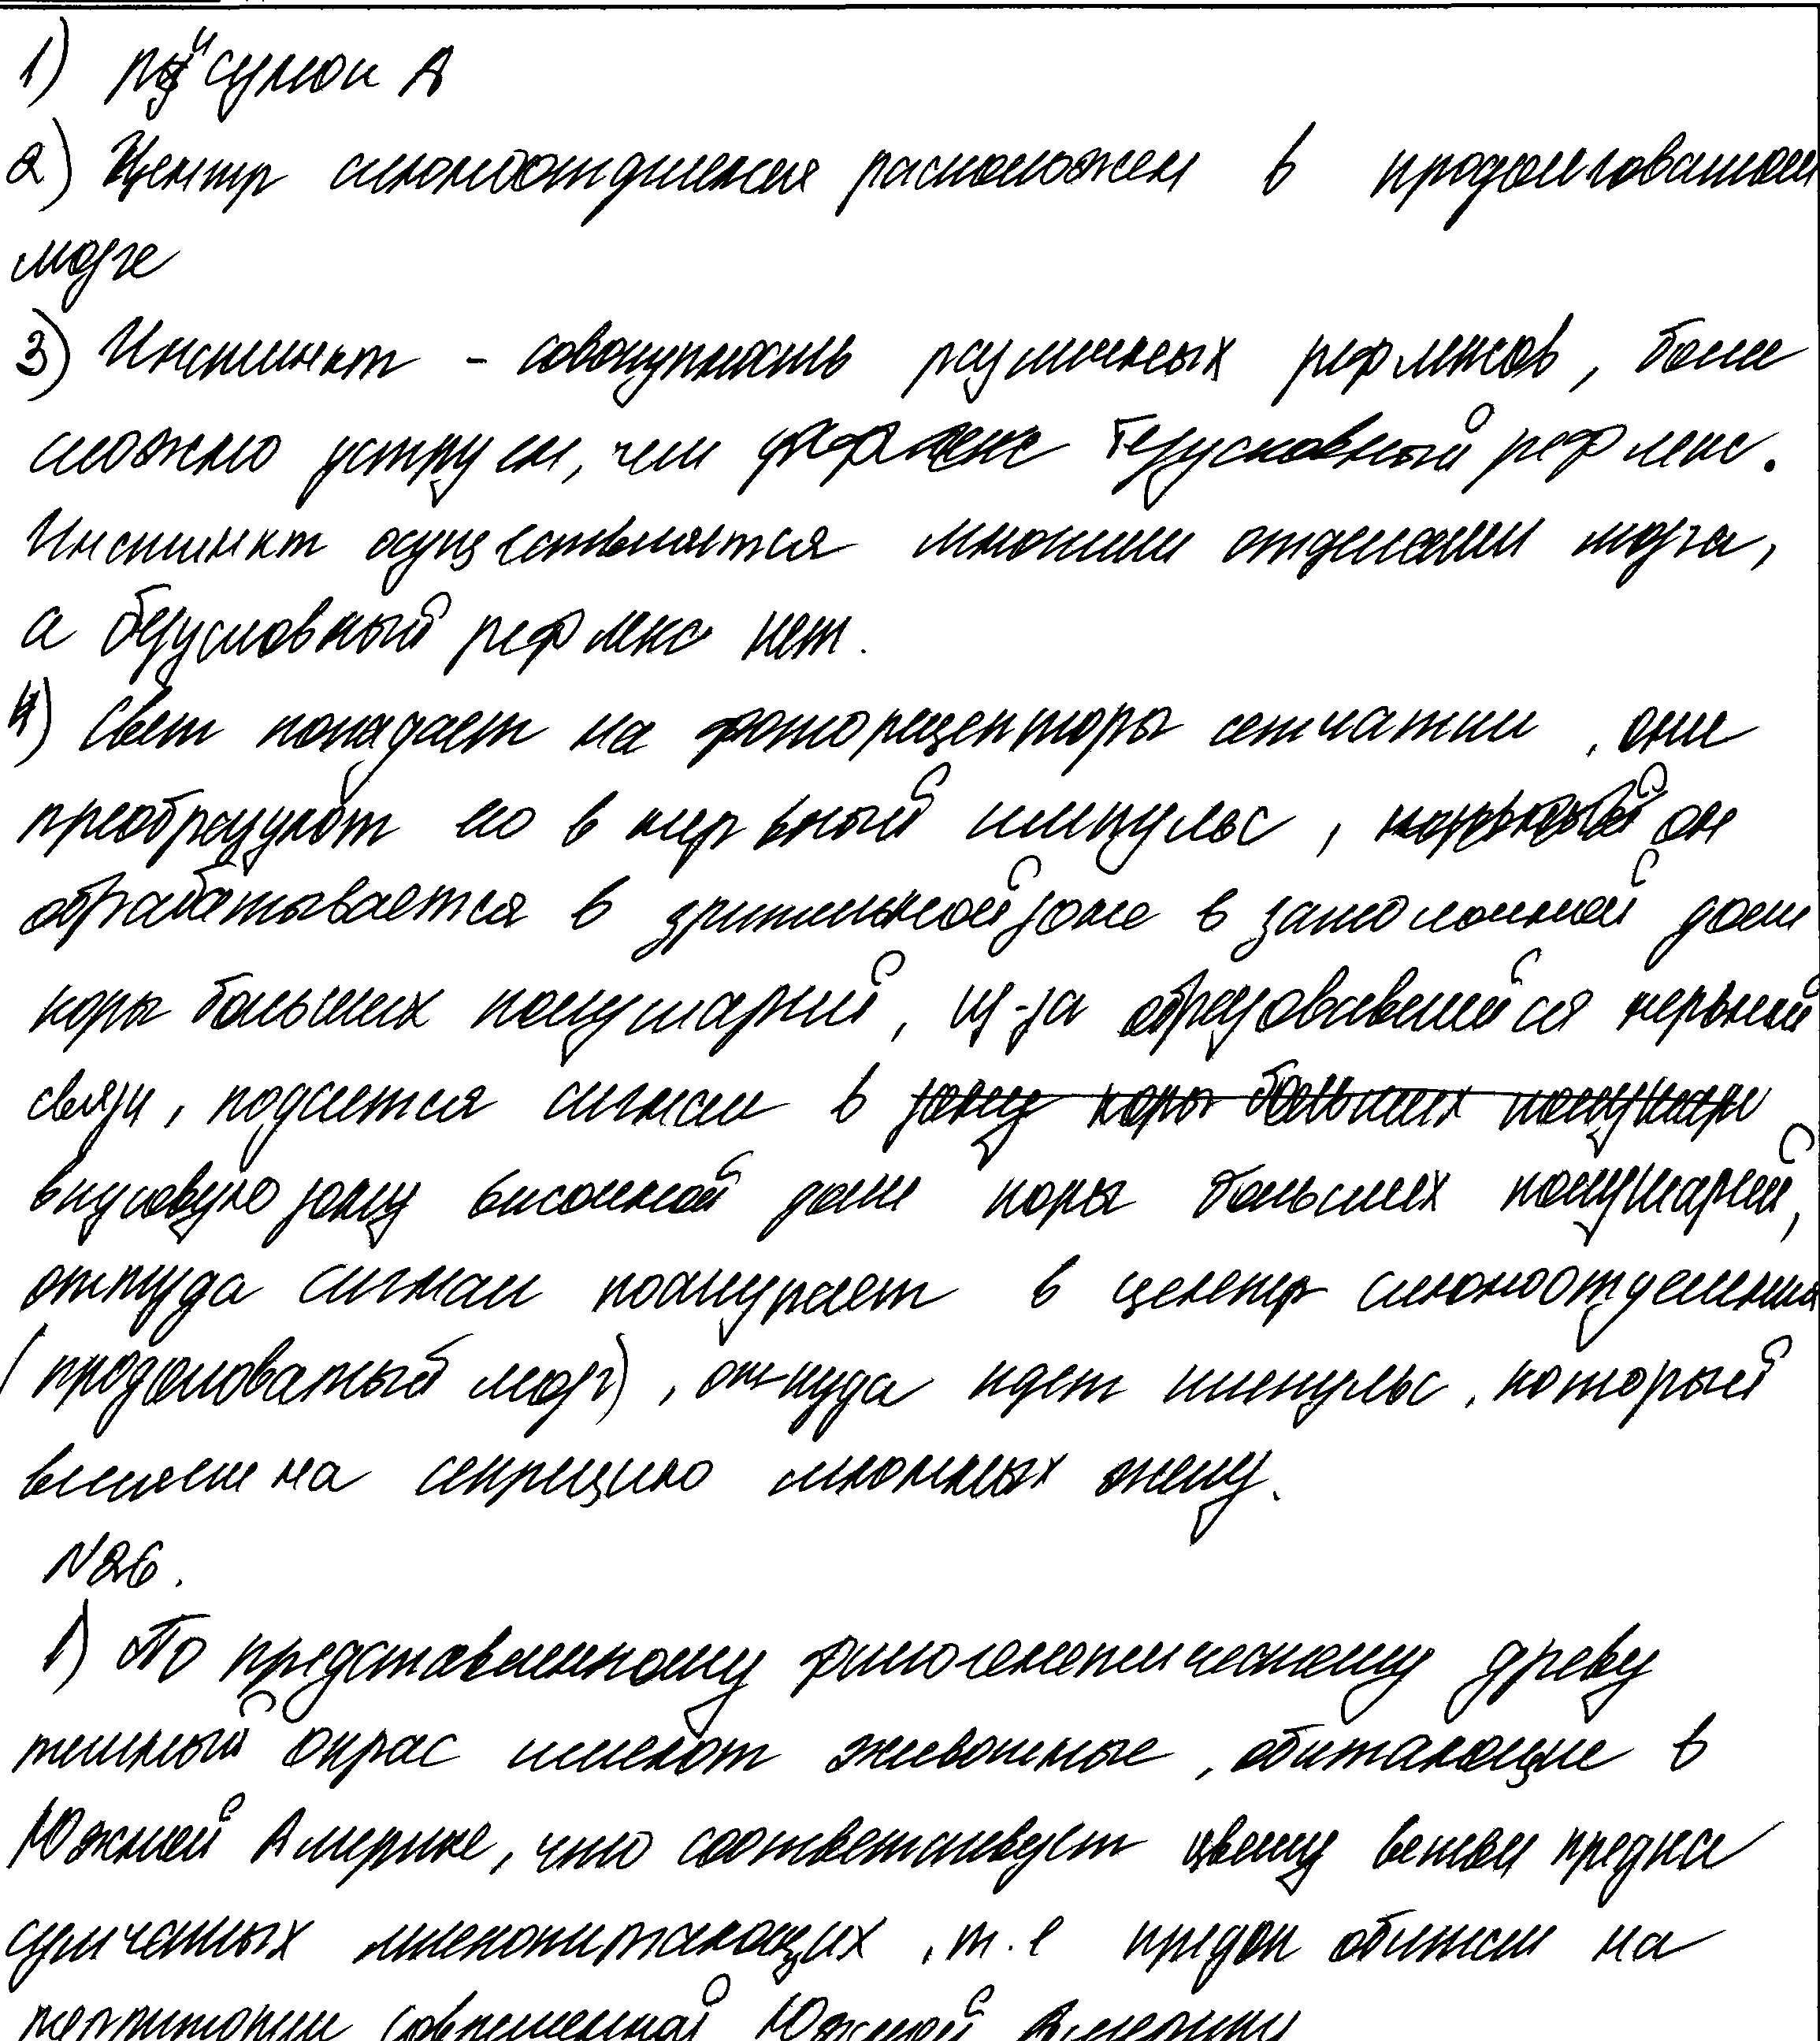 1) рисунок А
2) Центр слюноотделения расположен в продолговатом
мозге
3) Инстинкт - совокупность различных рефлексов, более
сложно устроен, чем рефлекс безусловный рефлекс.
Инстинкт осуществляется многими отделами мозга,
а безусловный рефлекс нет.
4) Свет попадает на фоторецепторы сетчатки, они
преобразуют его в нервный импульс, который он
обрабатывается в зрительной зоне в затылочной доли
коры больших полушарий, из-за образовавшейся нервной
связи, подается сигнал в зону коры больших полушари
вкусовую зону височной доли коры больших полушарий,
откуда сигнал поступает в центр слюноотделения
(продолговатый мозг), откуда идет импульс, который
влияет на секрецию слюнных желез.
№26.
1) По представленному филогенетическому древу
темный окрас имеют животные, обитающие в
Южной Америке, что соответствует цвету ветви предка
сумчатых млекопитающих, т.е предок обитал на
территории современной Южной Америки